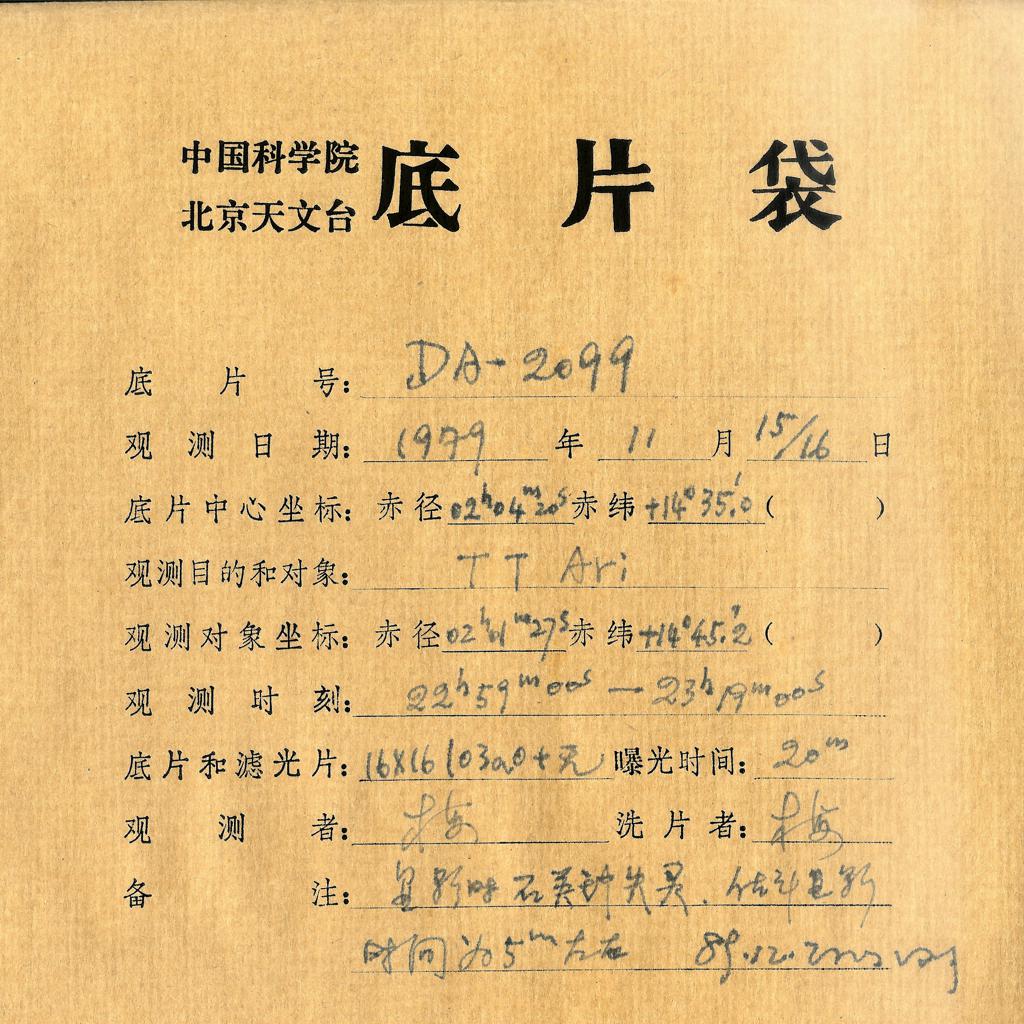 中国科学院
北京天文台
底片袋
底片号: DA-2099
观测日期: 1979年11月15/16日
底片中心坐标: 赤径02ʰ04ᵐ20ˢ赤纬+14°35.'0( )
观测目的和对象: TT Ari
观测对象坐标: 赤径02ʰ01ᵐ27ˢ赤纬+14°45.'2( )
观测时刻: 22ʰ59ᵐ00ˢ — 23ʰ19ᵐ00ˢ
底片和滤光片: 16X16 103a0+无 曝光时间: 20ᵐ
观测者: 梅 洗片者: 梅
备注: 显影时石英钟失灵. 估计显影
时间为5ᵐ左右 89.12.